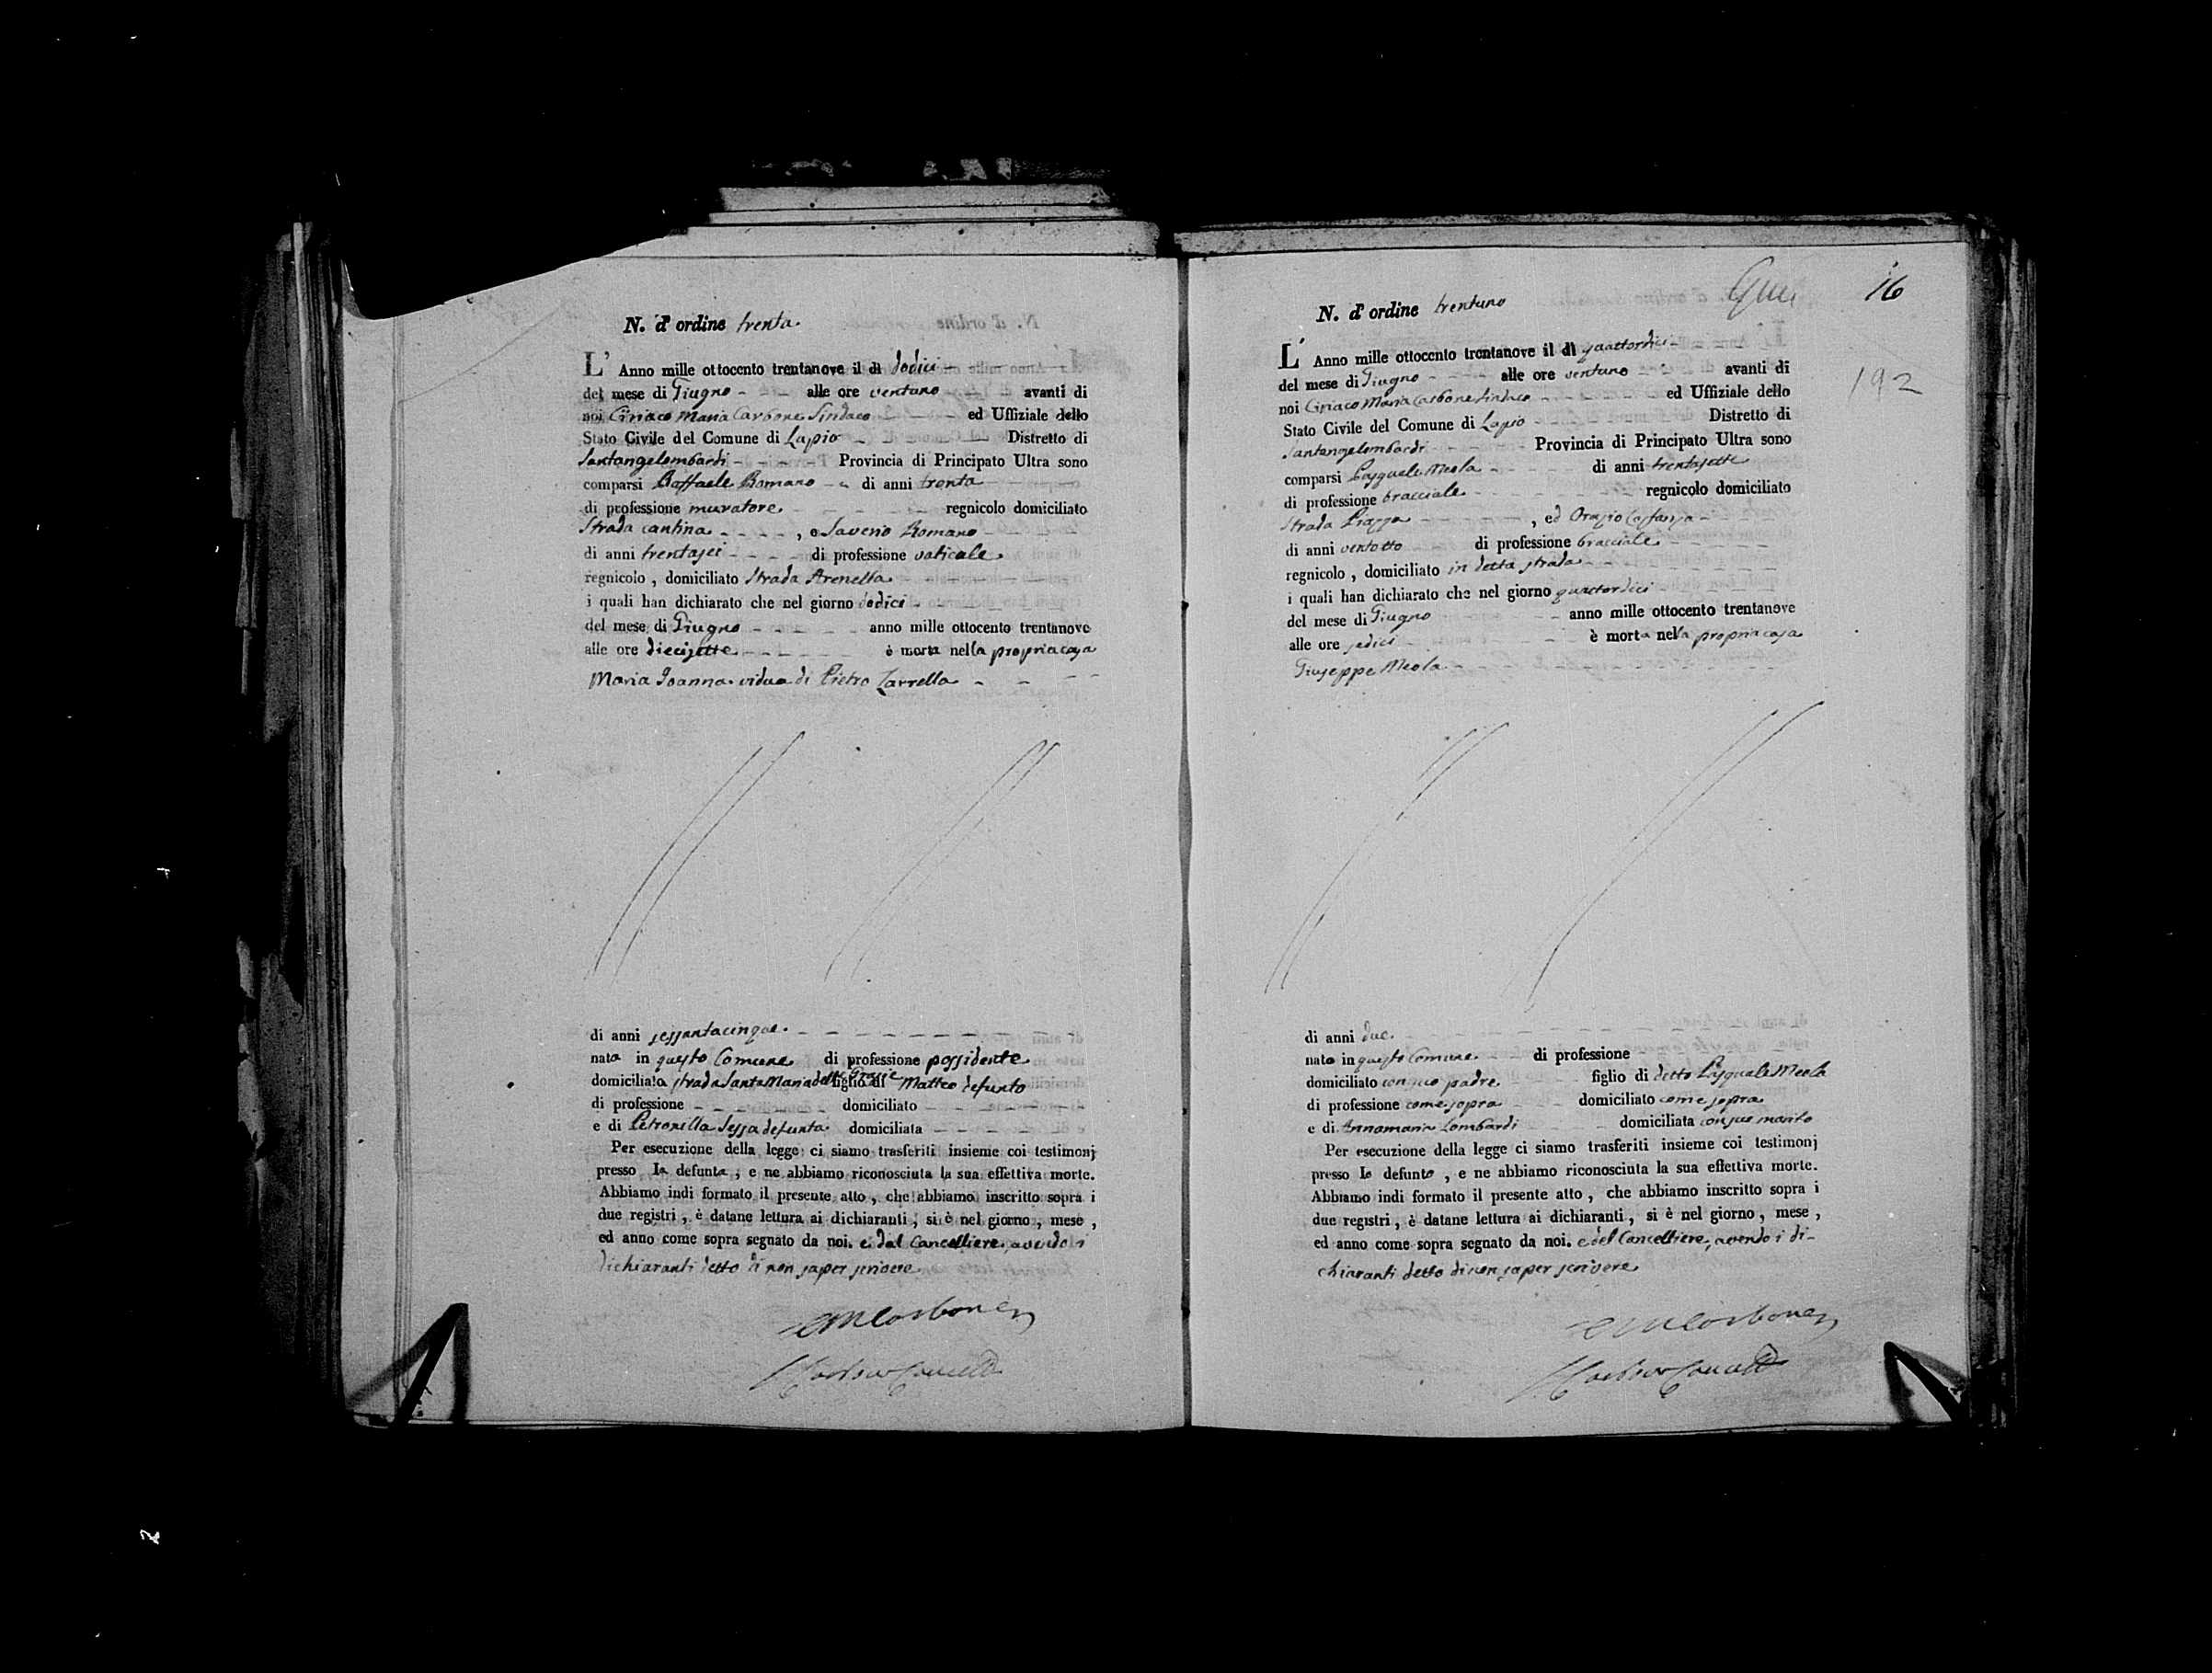 N. d'ordine trenta
L' Anno mille ottocento trentanove il dì dodici
del mese di Giugno alle ore ventuno avanti di
noi Ciriaco Maria Carbone Sindaco ed Uffiziale dello
Stato Civile del Comune di Lapio Distretto di
Santangelombardi Provincia di Principato Ultra sono
comparsi Raffaele Romano di anni trenta
di professione muratore regnicolo domiciliato
Strada cantina , e Saverio Romano
di anni trentasei di professione vaticale
regnicolo , domiciliato Strada Arenella
i quali han dichiarato che nel giorno dodici
del mese di Giugno anno mille ottocento trentanove
alle ore diecisette è morta nella propria casa
Maria Ioanna vidua di Pietro Zarrella
di anni sessantacinque
nata in questo Comune di professione possidente
domiciliata strada Santa Maria delle Grazie figlio di Matteo defunto
di professione domiciliato
e di Petronilla Sessa defunta domiciliata
Per esecuzione della legge ci siamo trasferiti insieme coi testimonj
presso la defunta , e ne abbiamo riconosciuta la sua effettiva morte.
Abbiamo indi formato il presente atto , che abbiamo inscritto sopra i
due registri , è datane lettura ai dichiaranti , si è nel giorno , mese ,
ed anno come sopra segnato da noi. e dal Cancelliere, avendo i
dichiaranti detto di non saper scrivere
CMCarbone
16
192
N. d'ordine trentuno
L' Anno mille ottocento trentanove il dì quattordici
del mese di Giugno alle ore ventuno avanti di
noi Ciriaco Maria Carbone Sindaco ed Uffiziale dello
Stato Civile del Comune di Lapio Distretto di
Santangelombardi Provincia di Principato Ultra sono
comparsi Pasquale Meola di anni trentasette
di professione bracciale regnicolo domiciliato
Strada Piazza , ed Orazio
di anni ventotto di professione bracciale
regnicolo , domiciliato in detta strada
i quali han dichiarato che nel giorno quattordici
del mese di Giugno anno mille ottocento trentanove
alle ore sedici è morta nella propria casa
Giuseppe Meola
di anni due
nato in questo Comune di professione
domiciliato con suo padre figlio di detto Pasquale Meola
di professione come sopra domiciliato come sopra
e di Annamaria Lombardi domiciliata con suo marito
Per esecuzione della legge ci siamo trasferiti insieme coi testimonj
presso lo defunto , e ne abbiamo riconosciuta la sua effettiva morte.
Abbiamo indi formato il presente atto , che abbiamo inscritto sopra i
due registri , è datane lettura ai dichiaranti , si è nel giorno , mese ,
ed anno come sopra segnato da noi. e del Cancelliere, avendo i di-
chiaranti detto di non saper scrivere
CMCarbone